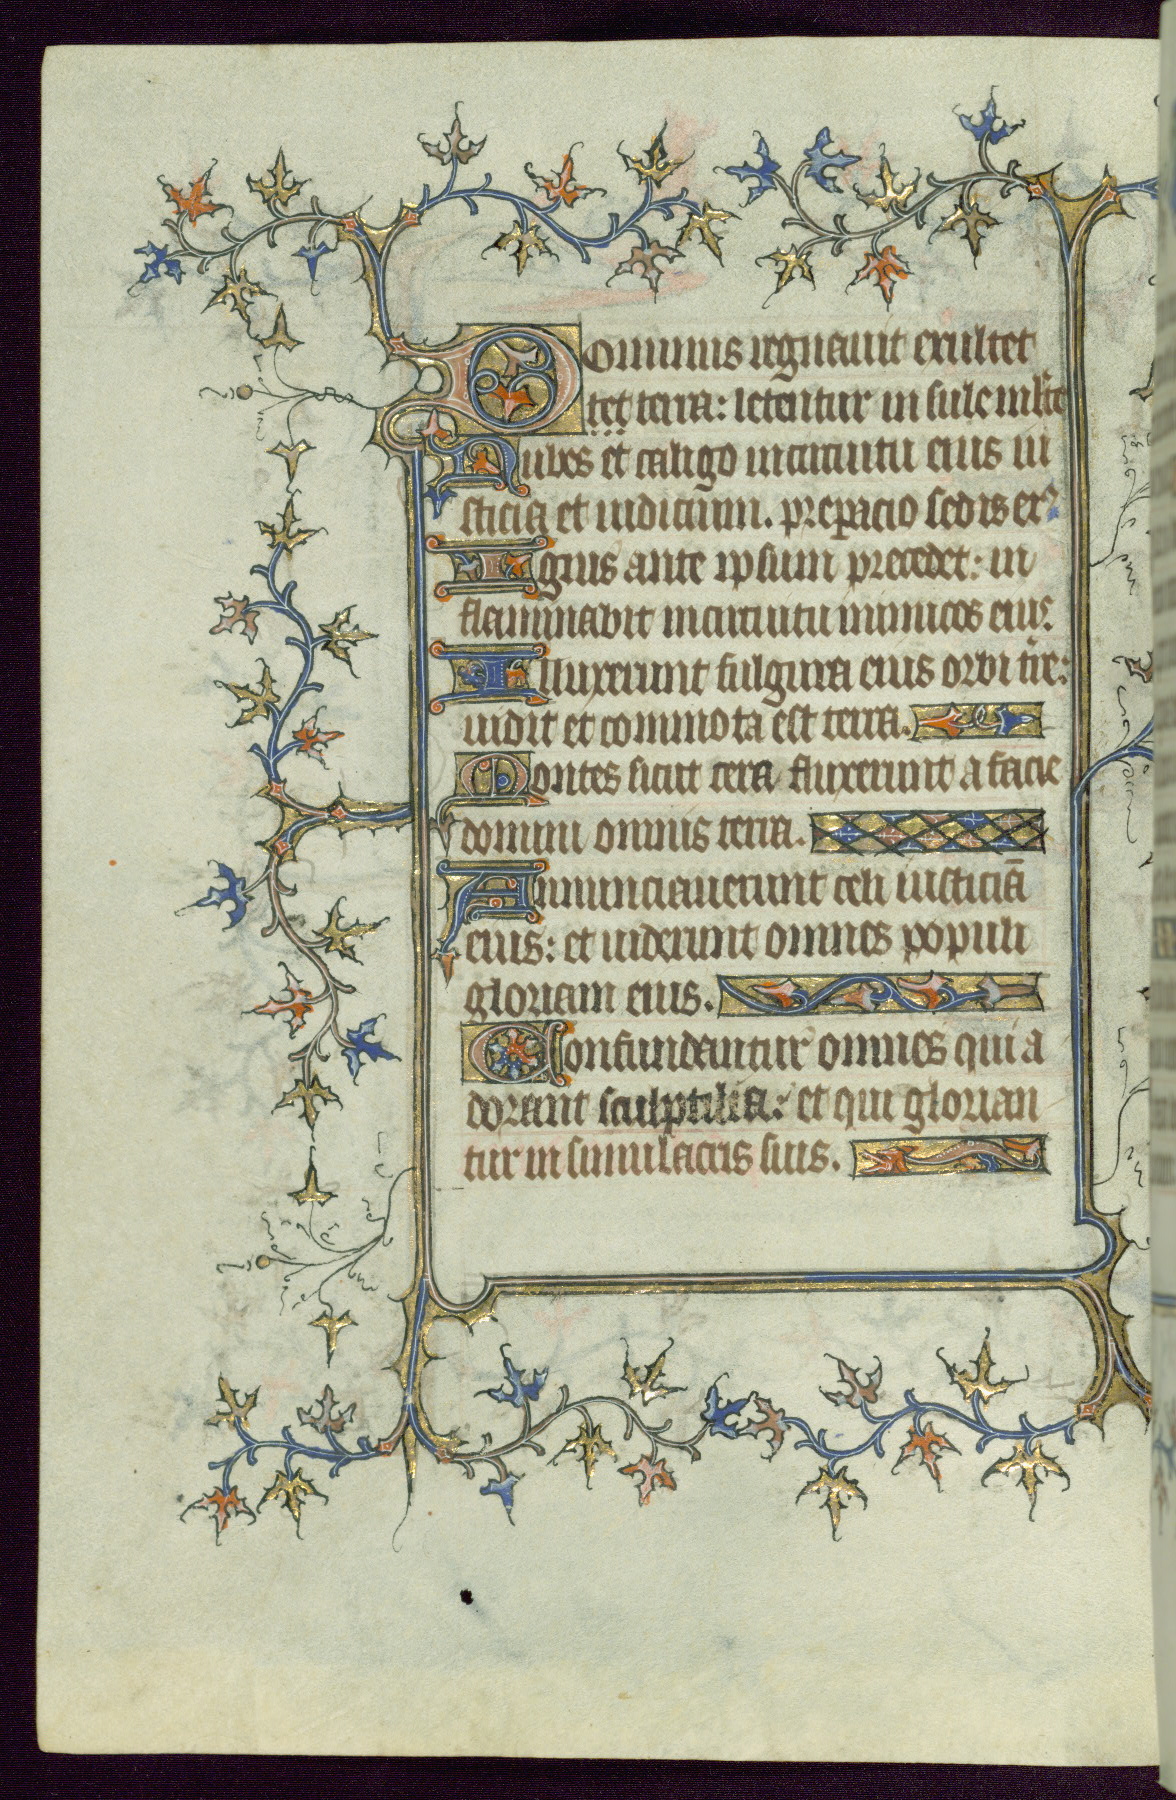 Dominus regnauit exultet
tet terra: letentur insule ml̄te
Nubes et caligo incircuitu eius iu
sticia et iudicium. prepacio sedis ei9
Ignis ante ipsum precedet: in
flammabit incircuitu inimicos eius.
Illuxerunt fulgura eius orbi t̄re:
uidit et commota est terra.
Montes sicut cera fluxerunt a facie
domini omnis terra.
Annunciauerunt celi iusticiā
eius: et uiderunt omnes populi
gloriam eius.
Confundantur omnes qui a
dorant sculptilia: et qui glorian
tur insimulacris suis.